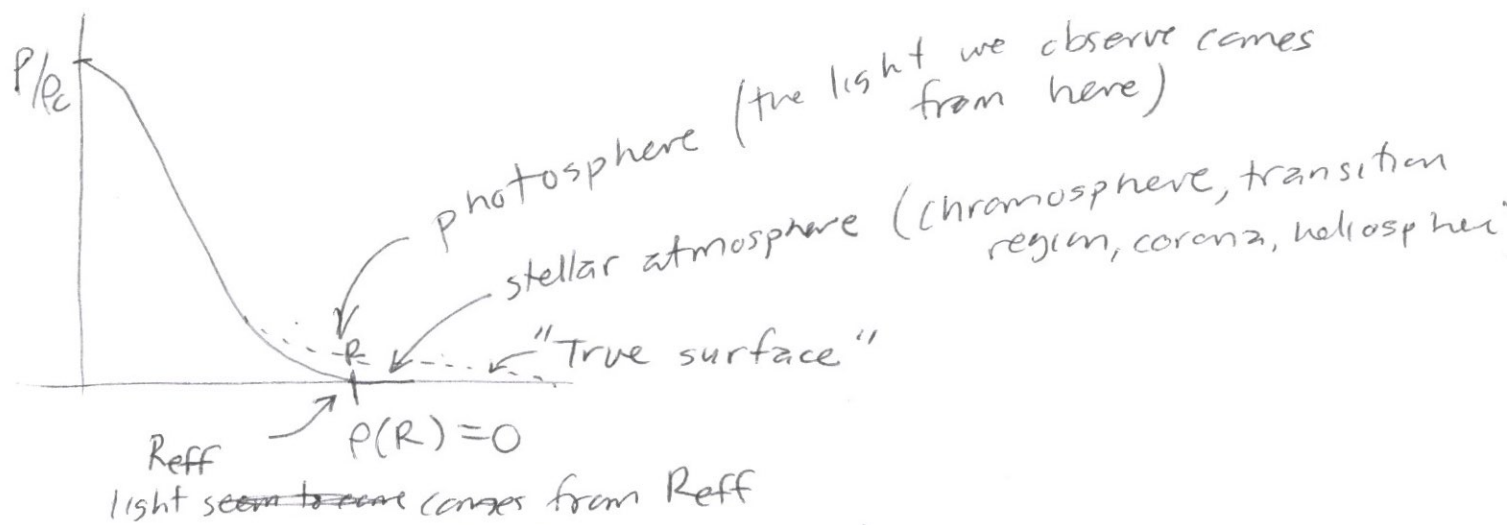 ρ/ρc
photosphere (the light we observe comes
from here)
stellar atmosphere (chromosphere, transition
region, corona, heliospher
"True surface"
R
Reff
ρ(R) = 0
light seem to come comes from Reff